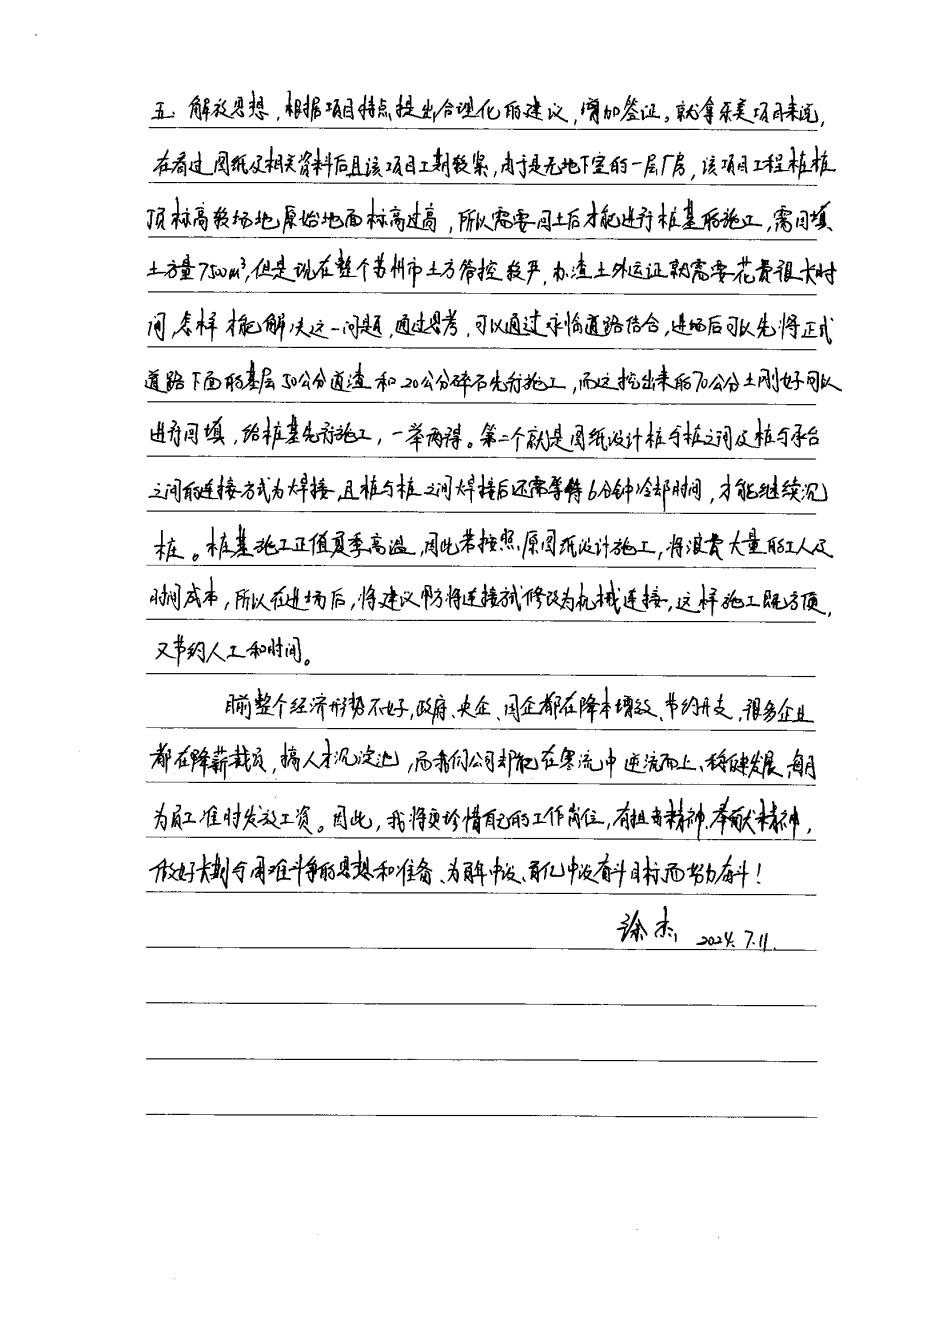 五、解放思想，根据项目特点提出合理化的建议，增加签证。就拿乐美项目来说，
在看过图纸及相关资料后且该项目工期较紧，由于是无地下室的一层厂房，该项目工程桩桩
顶标高较场地原始地面标高过高，所以需要回土后才能进行桩基的施工，需回填
土方量7500m³，但是现在整个苏州市土方管控较严，办渣土外运证就需要花费很大时
间，怎样才能解决这一问题，通过思考，可以通过永临道路结合，进场后可以先将正式
道路下面的基层50公分道渣和20公分碎石先行施工，而这挖出来的70公分土刚好可以
进行回填，给桩基先行施工，一举两得。第二个就是图纸设计桩与桩之间及桩与承台
之间的连接方式为焊接，且桩与桩之间焊接后还需等待6分钟冷却时间，才能继续沉
桩。桩基施工正值夏季高温，因此若按照原图纸设计施工，将浪费大量的工人及
时间成本，所以在进场后，将建议甲方将连接方式修改为机械连接，这样施工既方便，
又节约人工和时间。
目前整个经济形势不好，政府、央企、国企都在降本增效、节约开支，很多企业
都在降薪裁员，搞人才沉淀池，而我们公司却能在寒流中逆流而上、稳健发展，每月
为员工准时发放工资。因此，我将更珍惜自己的工作岗位，有担当精神、奉献精神，
做好长期与困难斗争的思想和准备、为百年中设、百亿中设奋斗目标而努力奋斗！
徐杰 2024.7.11.